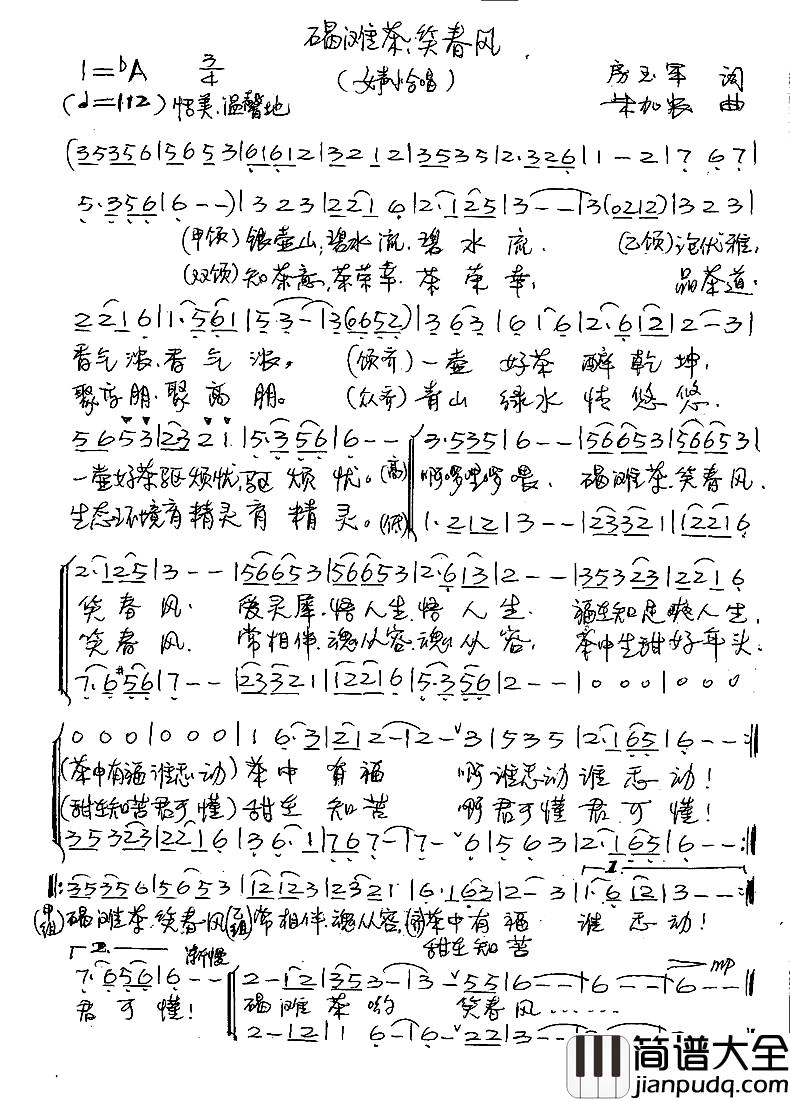 碣滩茶,笑春风
1=bA 3/4 (女声小合唱) 房玉军 词
(♩=112) 恬美.温馨地 加农 曲
(35356|56053|61612|3212|35353 5|2·326|1-2|767|
5·356|6--)|323|2216|2·125|3--|3(0212)|323|
(甲领)银壶山,碧水流.碧水流. (乙领)泡优雅,
(双领)知茶意,茶荣幸.茶荣幸, 品茶道.
2216|1·561|5·3-|3(6652)|363|616|2·612|2-3|
香气浓.香气浓。(领齐)一壶好茶醉乾坤,
聚高朋.聚高朋。(众齐)青山绿水情悠悠.
5653|2321|5·356|6--|3·535|6--|566653|566653|
一壶好茶驱烦忧,驱烦忧。(高)啊啰哩啰喂.碣滩茶.笑春风.
生态环境育精灵育精灵。(低)1·212|3--|23321|12216
2·125|3--|56653|56653|2·613|2--|35323|2216
笑春风.爱灵犀.悟人生.悟人生.福至知足爽人生,
笑春风.常相伴.魂从容.魂从容,茶中生甜好年头.
7·6#56|7--|23321|12216|5·356|2--|000|000
000|000|16·3|212-|2-3|535|2·165|6--:||
(茶中有福谁悉动)茶中有福 啊谁悉动谁悉动!
(甜至知苦君可懂)甜至知苦 啊君可懂君可懂!
35323|2216|36·1|767-|7-6|563|2·165|6--:||
1.
||:35356|56053|12123|2321|6·163|2-3|1·612|3--:||
(甲组)碣滩茶.笑春风(乙组)常相伴.魂从容,(齐)茶中有福 谁悉动!
2. 渐慢 甜至知苦 mp
7·6556|6--|2-12|353-|3-|556-|6--|6--||
君可懂! 碣滩茶哟 笑春风……
2-12|16-|6-22|3--|3--|3--||
简谱大全
jianpudq.com